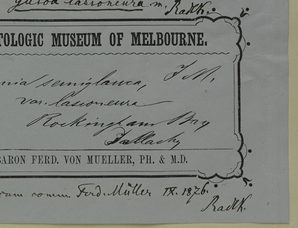 lasioneura m. Radlk.
TOLOGIC MUSEUM OF MELBOURNE.
nia semiglauca, F.M.
var. lasioneura
Rockingham Bay
Dallachy
BARON FERD. VON MUELLER, PH. & M.D.
comm. Ferd. Müller IX. 1876.
Radlk.